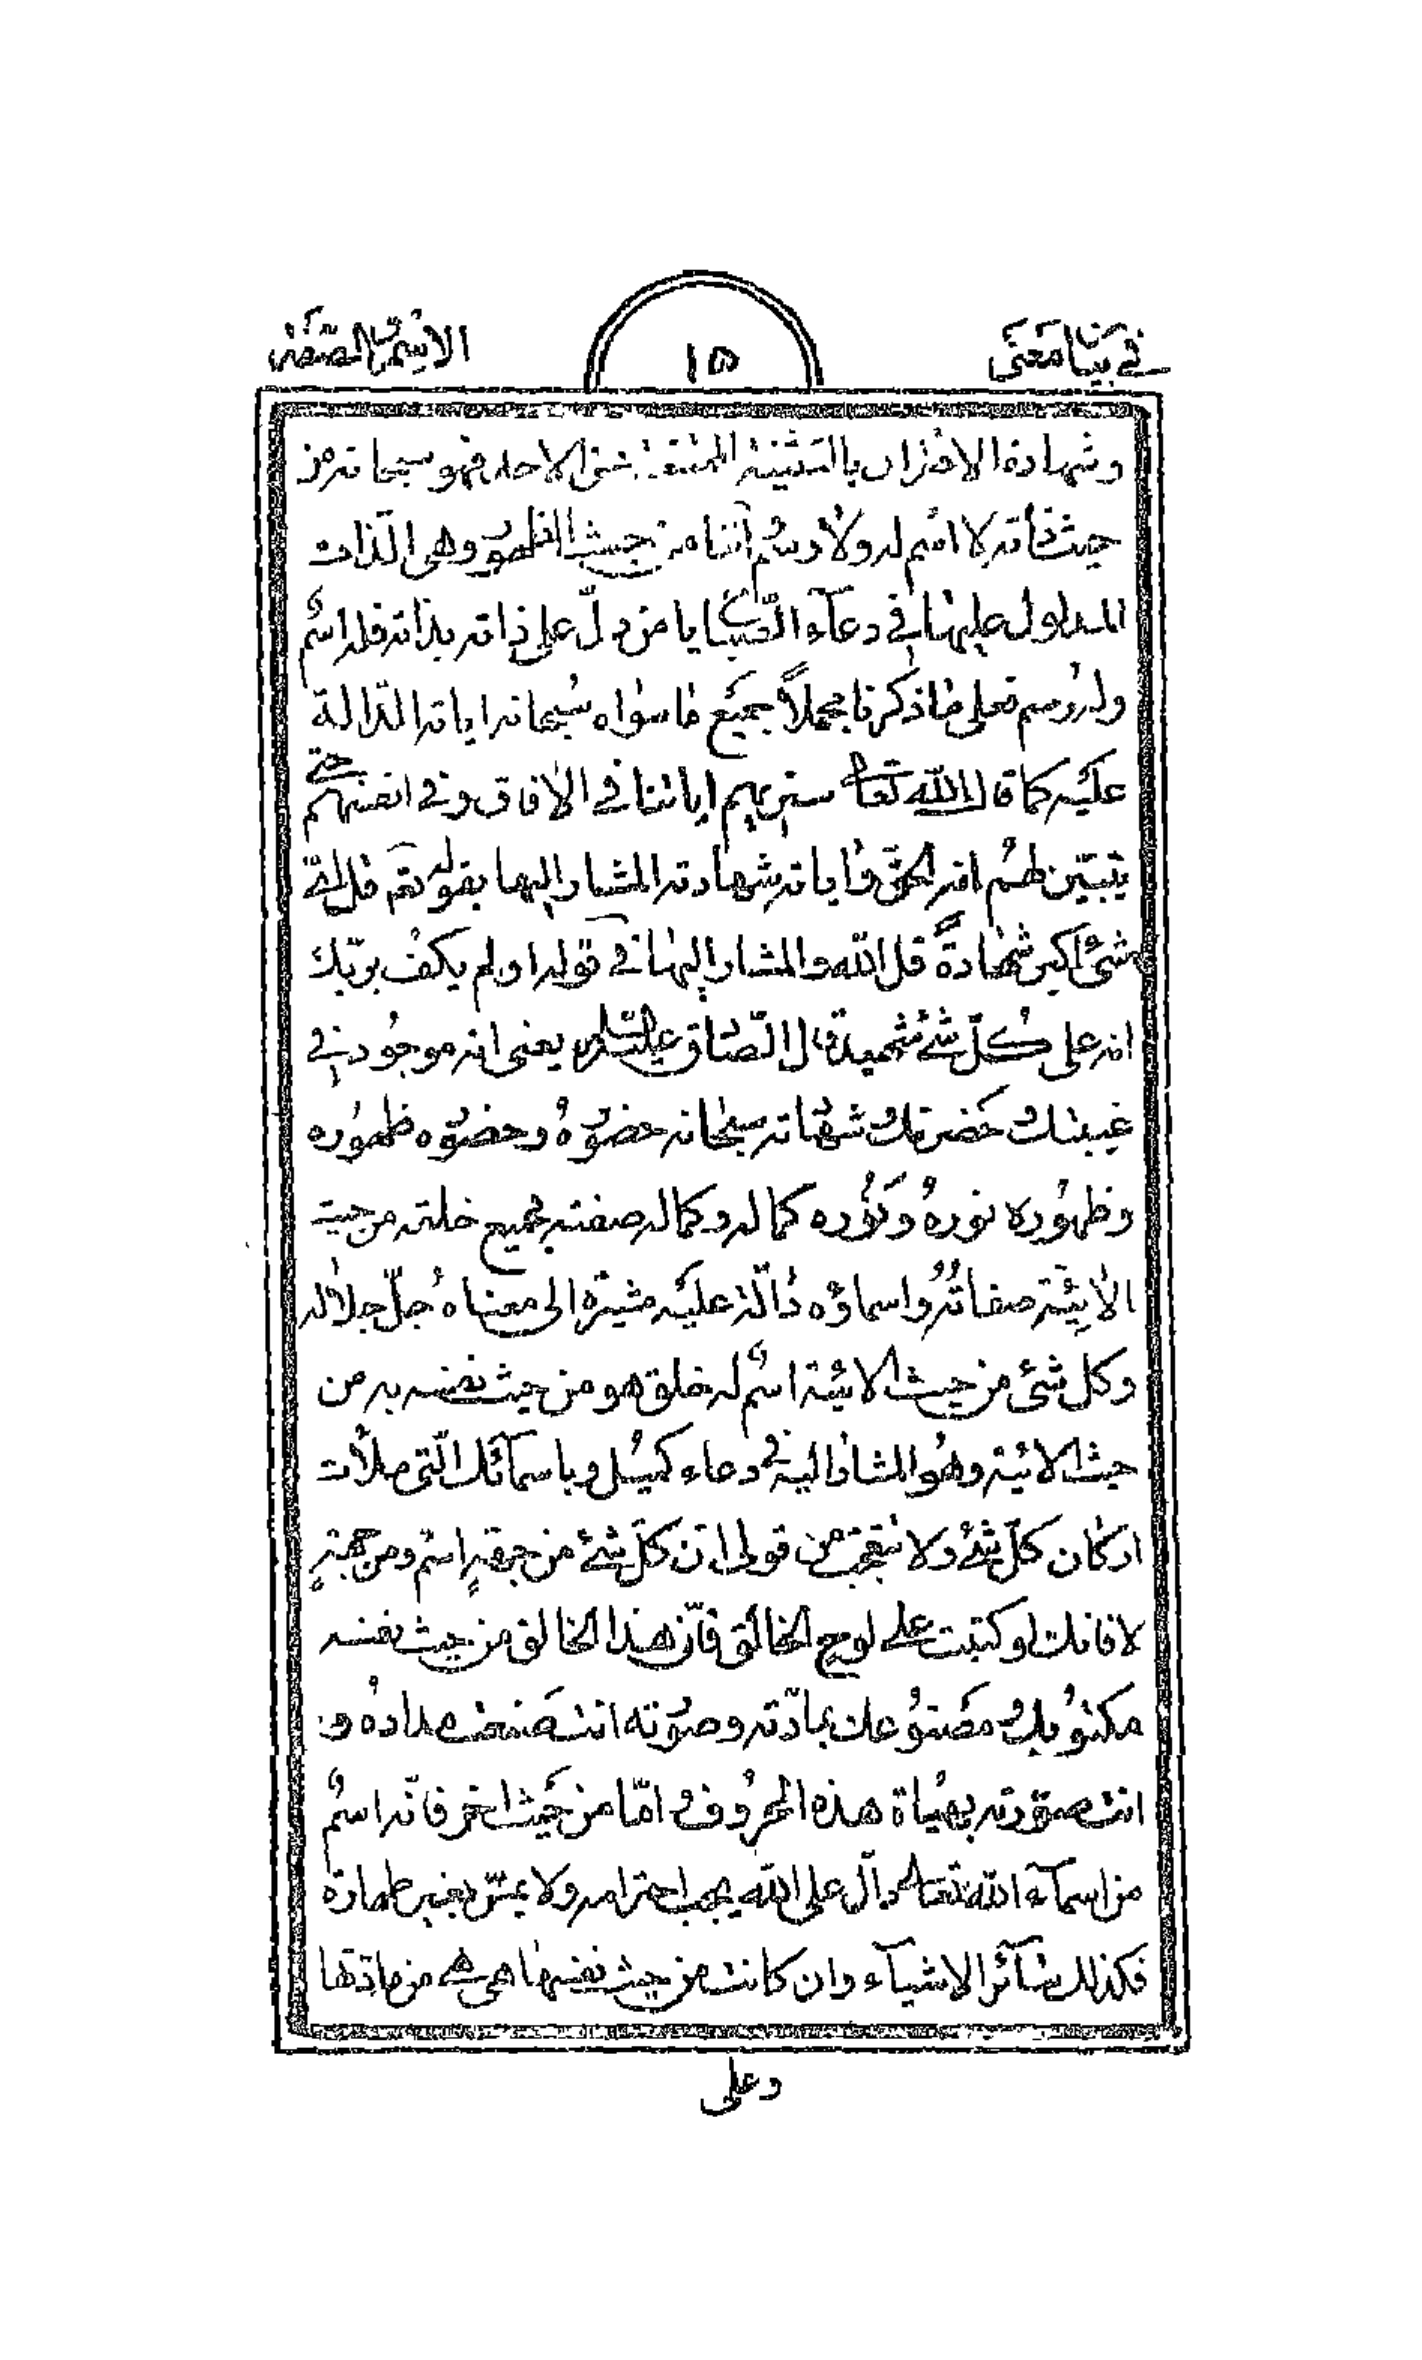 في بيان معنى
١٥
الاسم والصفة
وشهادة الاقتران بالتثنية الممتنعة عن الاحد فهو سبحانه من
حيث ذاته لا اسم له ولا رسم امّا من حيث الظهور وهى الذات
المدلول عليها فى دعاء الصباح يا من دلّ على ذاته بذاته فله اسمٌ
وله رسم فعلى ما ذكرنا مجملاً جميع ما سواه سبحانه اياته الدّالة
عليه كما قال الله تعالى سنريهم اياتنا في الافاق وفي انفسهم حتى
يتبيّن لهم انه الحق واياته شهادته المشار اليها بقوله تعـ قل ايّ
شئ اكبر شهادةً قل الله والمشار اليها في قوله اولم يكف بربّك
انه على كلّ شئ شهيد قال الصّادق عليه السّلام يعنى انه موجود في
غيبتك وحضرتك وشهادته سبحانه حضوره وحضوره ظهوره
وظهوره نورهُ ونوره كماله وكماله صفته فجميع خلقه من حيث
الايتية صفاتُه واسماؤه دالّة عليه مشيرة الى معناه جلّ جلاله
وكل شئ من حيث الايتية اسمٌ له خلق هو من حيث نفسه به من
حيث الايتية وهو المشار اليه في دعاء كميل وباسمائك الّتى ملأت
اركان كلّ شئ ولا تتعجّب من قولى انّ كلّ شئ من جهةٍ اسم ومن جهةٍ
لا فانك لو كتبت على لوح الخالق فانّ هذا الخالق من حيث نفسه
مكتوبك ومصنوعك بمادّته وصورته انت صنعت مداده و
انت صوّرته بهيأة هذه الحروف وامّا من حيث اخر فانّه اسمٌ
من اسماء الله تعالى دالّ على الله يجب احترامه ولا يمسّ بغير طهارة
فكذلك سائر الاشياء وان كانت من حيث نفسها هى هى من مادّتها
وعلى